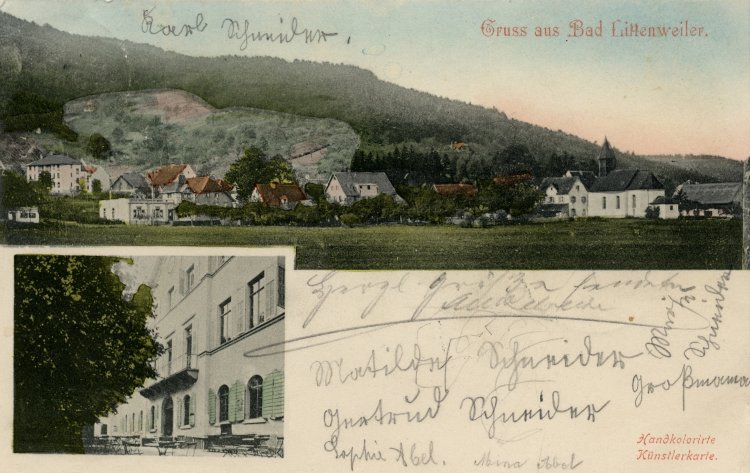 Karl Schneider.
Gruss aus Bad Littenweiler.
Herzl Grüße sendet
Mathilde Schneider
Gertrud Schneider
Sophie Abel. Anna Abel
Schneider
Großmama
Handkolorirte
Künstlerkarte.